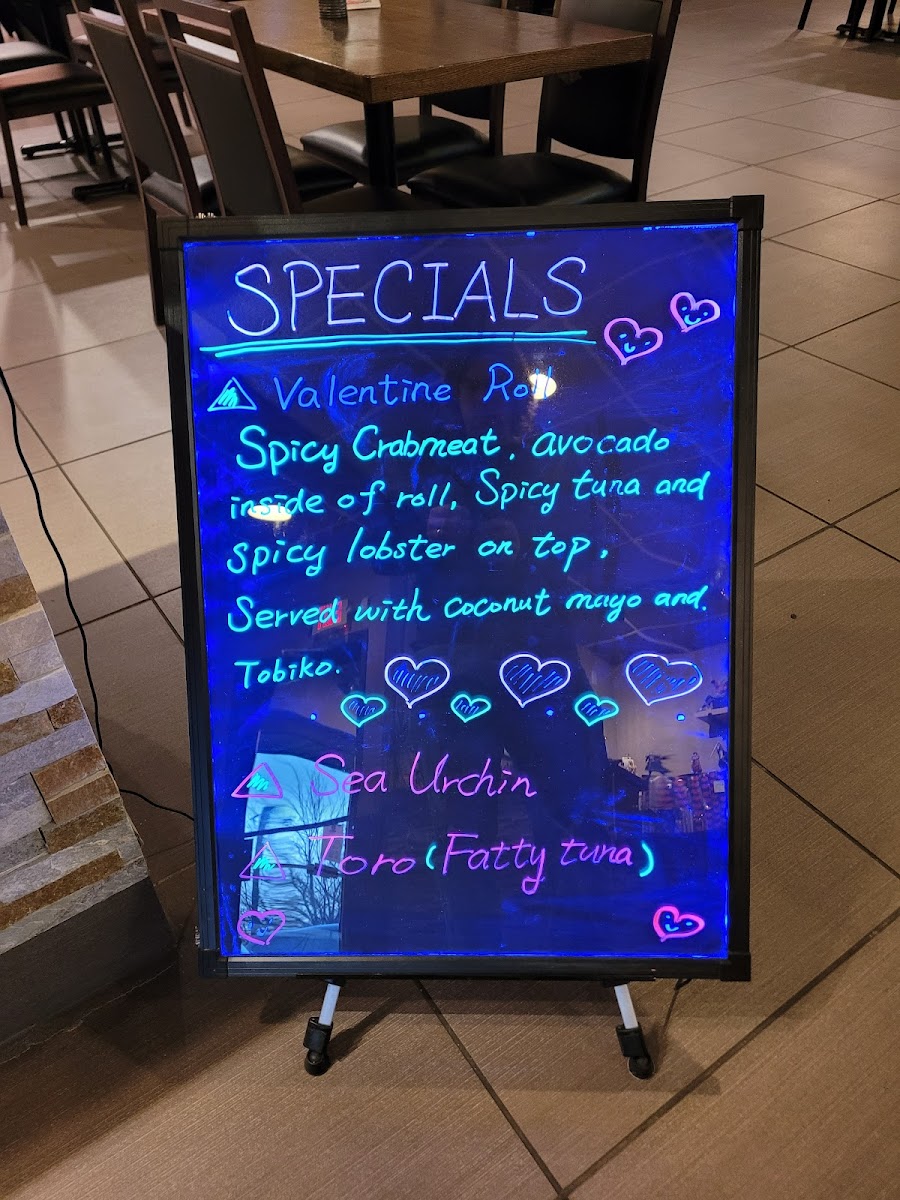 SPECIALS
Valentine Roll
Spicy Crabmeat, avocado
inside of roll, Spicy tuna and
spicy lobster on top,
Served with coconut mayo and.
Tobiko.
Sea Urchin
Toro (Fatty tuna)